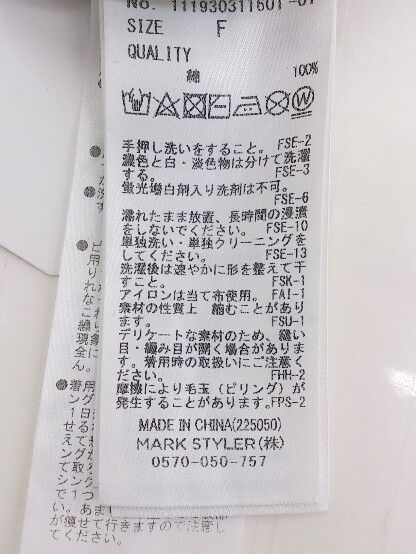 No. 111930311601-01
SIZE F
QUALITY
綿 100%
手押し洗いをすること。 FSE-2
濃色と白・淡色物は分けて洗濯
する。 FSE-3
蛍光増白剤入り洗剤は不可。
FSE-6
濡れたまま放置、長時間の浸漬
をしないでください。 FSE-10
単独洗い・単独クリーニングを
してください。 FSE-13
洗濯後は速やかに形を整えて干
すこと。 FSK-1
アイロンは当て布使用。 FAI-1
素材の性質上 縮むことがあり
ます。 FSU-1
デリケートな素材のため、縫い
目・編み目が開く場合がありま
す。着用時の取扱いにご注意く
ださい。 FHH-2
摩擦により毛玉(ピリング)が
発生することがあります。FPS-2
MADE IN CHINA(225050)
MARK STYLER(株)
0570-050-757
い。あま
が痩せて行きますので注意し
てください。